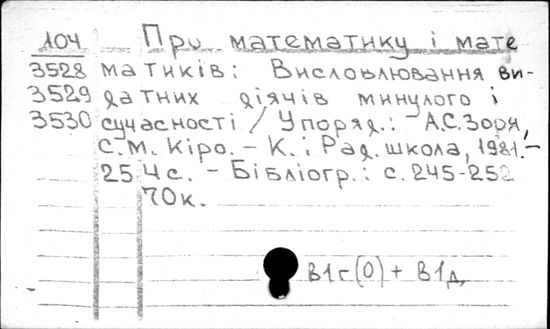 104 Про математику і мате
3528 матиків: Висловлювання ви-
3529 датних діячів минулого і
3530 сучасності / Упоряд.: А.С. Зоря,
С.М. Кіро. – К.: Рад. школа, 1981. –
254 с. – Бібліогр.: с. 245-252
70к.
В1г(0) + В1д,